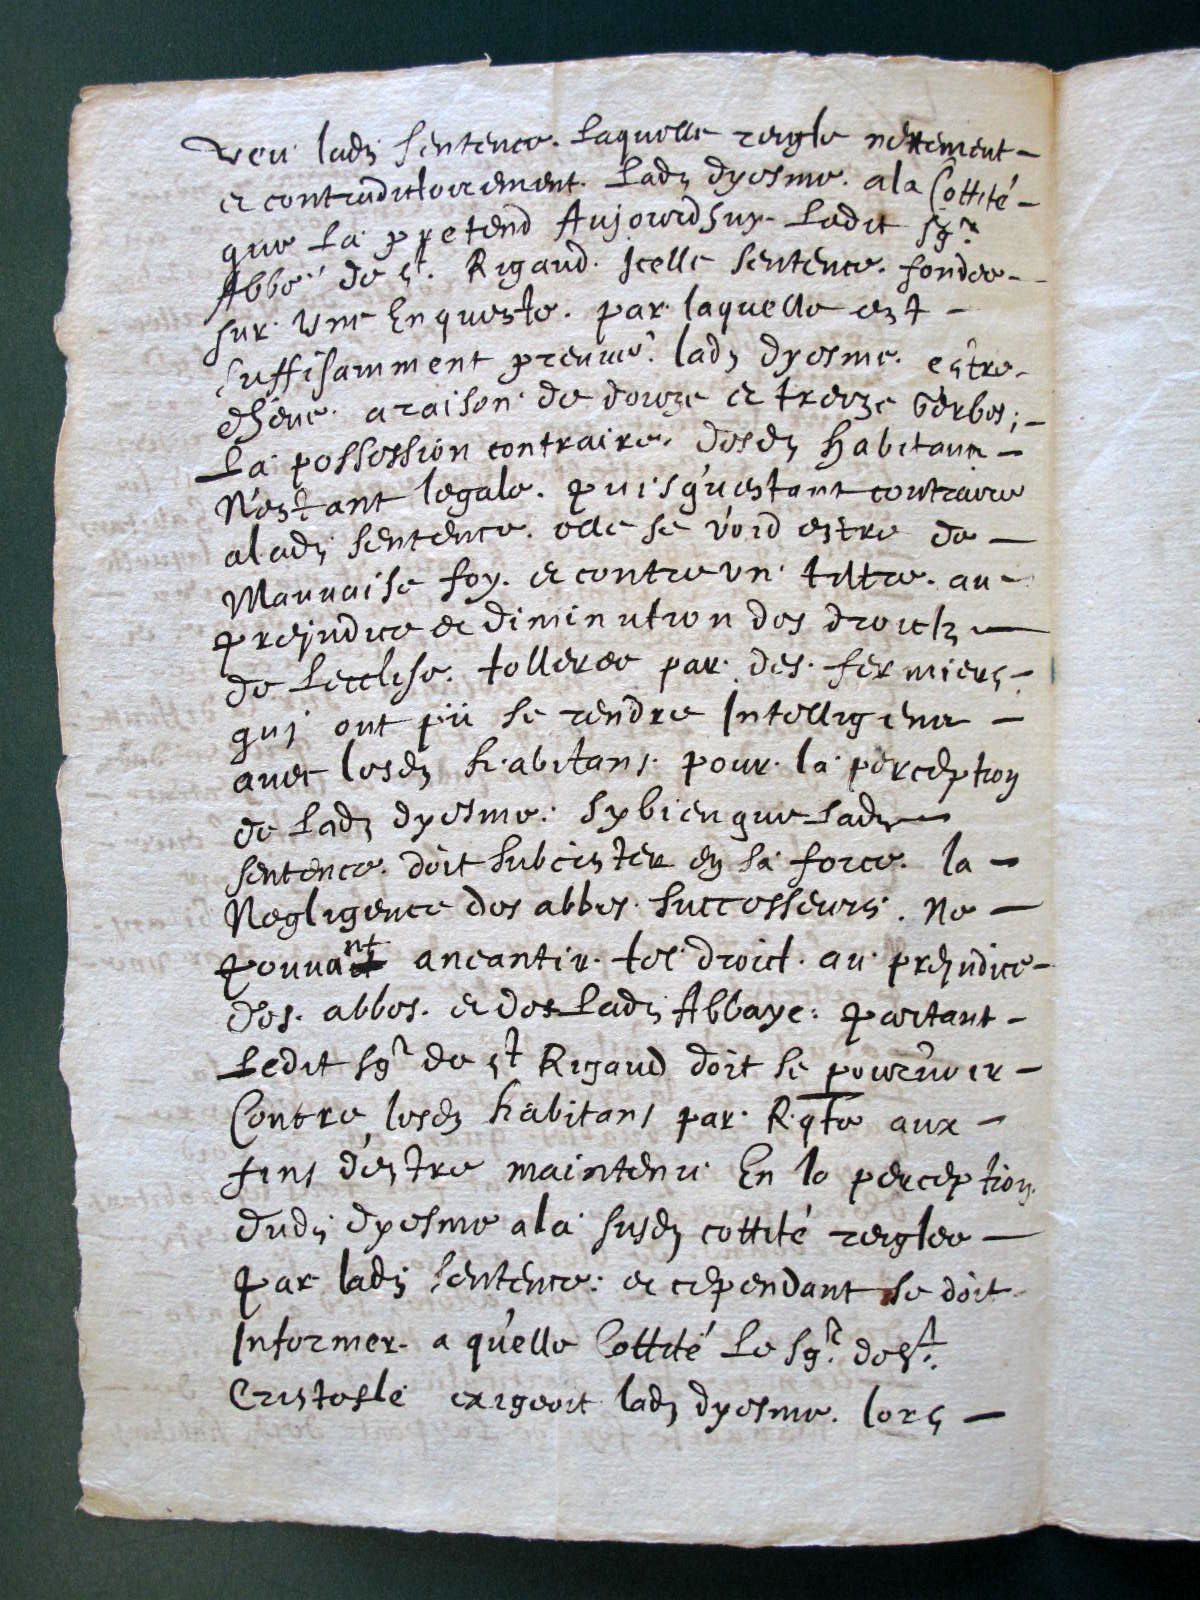 Veu lad. sentence. Laquelle reigle nettement -
et contradictoirement. Lad. dyesme. a la Cottité -
que La pretend Aujourdhuy. Ledit Sgr.
Abbé de St. Rigaud. Icelle sentence. fondee -
sur. Une Enqueste. par. laquelle est -
suffisamment preuvé. lad. dyesme. estre.
dheue. a raison. de douze et treize Gerbes; -
La possession contraire. desd. habitans -
N'estant legale. puisqu'estant contraire
a lad. sentence. elle se void estre de -
Mauvaise foy. et contre un tiltre. au -
prejudice et diminution des droictz -
de Lecclise. tolleree par. des. fermiers -
qui ont pû se rendre Intelligens -
avec lesd. habitans. pour. la perception
de Lad. dyesme. Sy bien que Lad. -
sentence. doit subcister en sa force. la -
Negligence des abbes. successeurs. Ne -
pouvant aneantir. tel droict. au prejudice -
des. abbes. et des Lad. Abbaye. partant -
Ledit Sgr de St Rigaud doit se pourvoir -
Contre lesd. habitans par. Rqte aux -
fins d'estre maintenu En la perception.
dud. dyesme a la susd. cottité reiglee -
par lad. sentence. et cependant se doit
Informer. a quelle Cottité Le Sgr. de St.
Cristofle exigeoit lad. dyesme. lors -